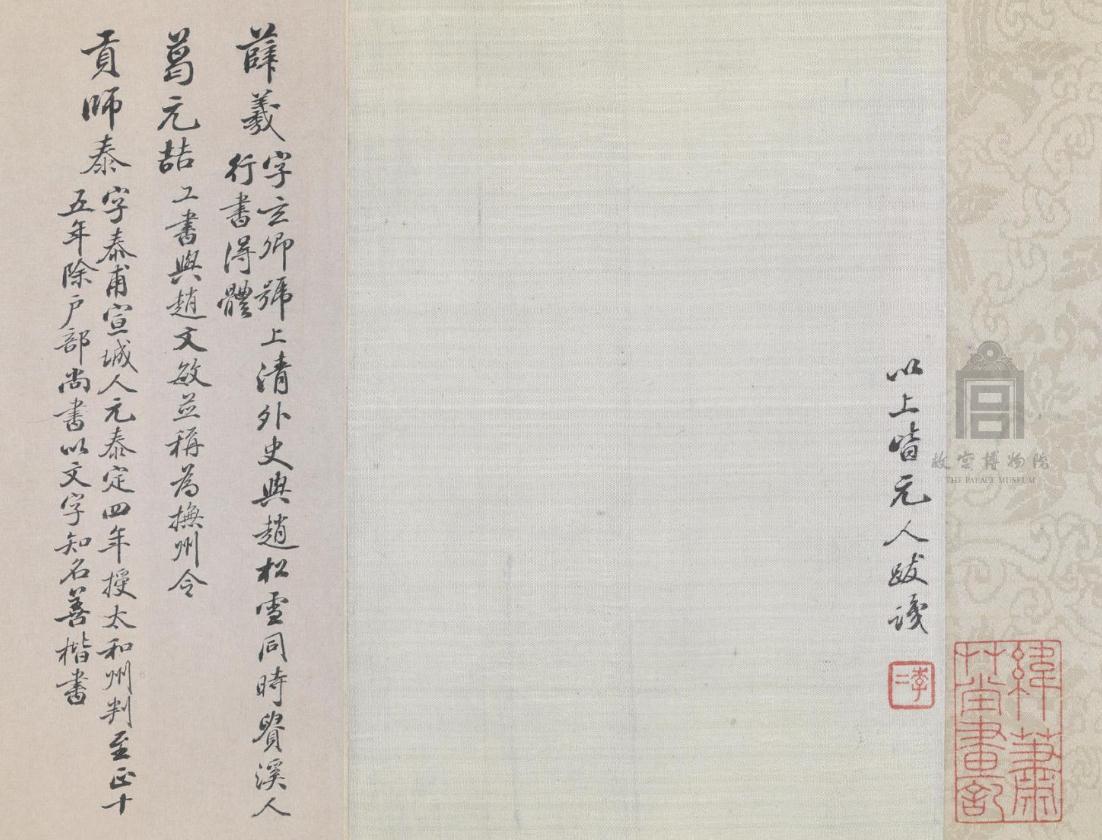 緯蕭
艸堂畫記
故宮博物院
THE PALACE MUSEUM
以上皆元人跋識
薛羲
字玄卿號上清外史與趙松雪同時貴溪人
行書得體
葛元喆
工書與趙文敏並稱為撫州令
貢師泰
字泰甫宣城人元泰定四年授太和州判至正十
五年除戶部尚書以文字知名善楷書